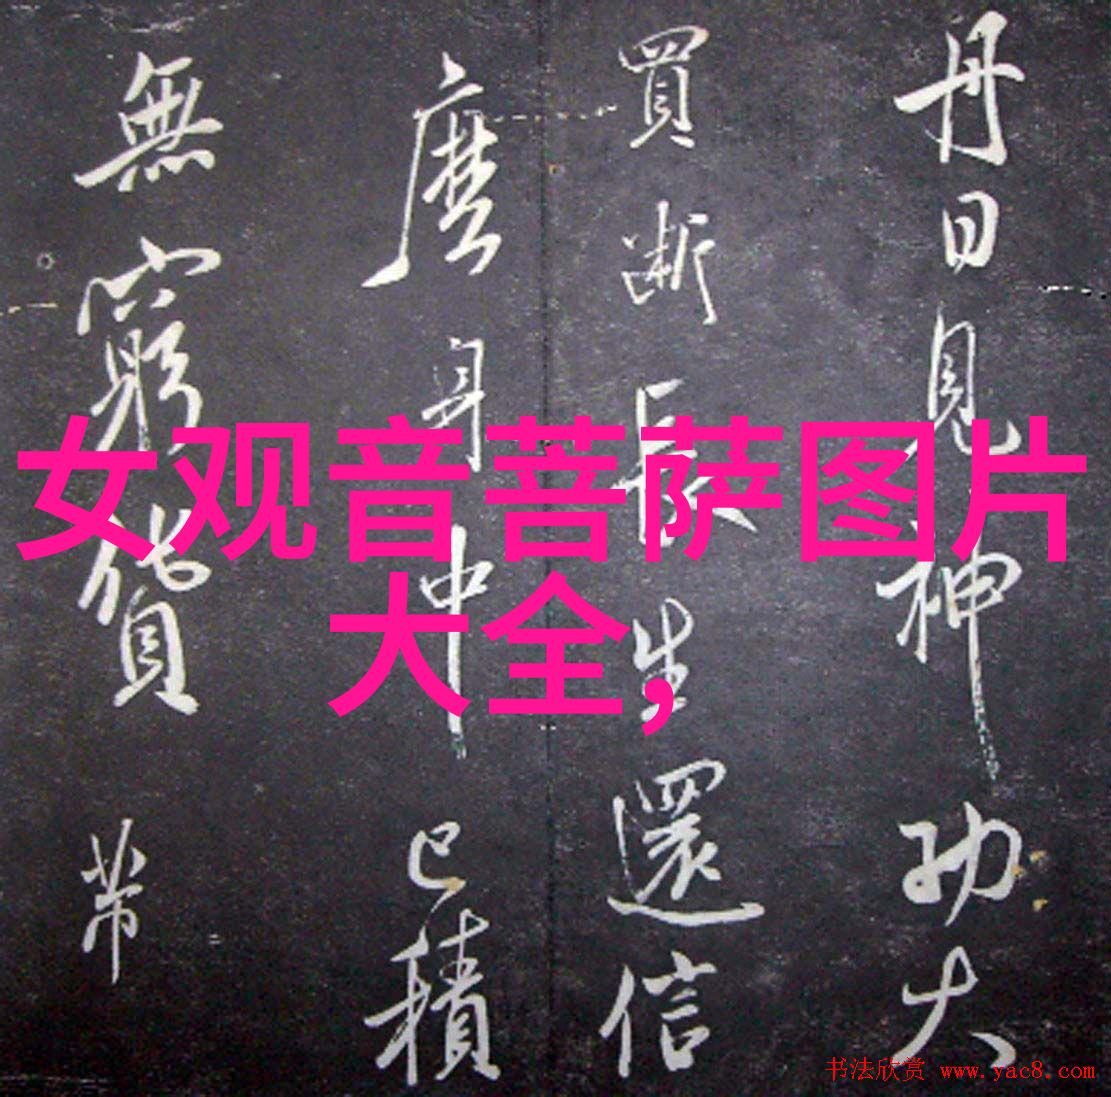 丹日見神功大
買斷長生還信
麼身中已積
無窮貨帶
女观音菩萨图片
大全,
书法欣赏 www.yac8.com